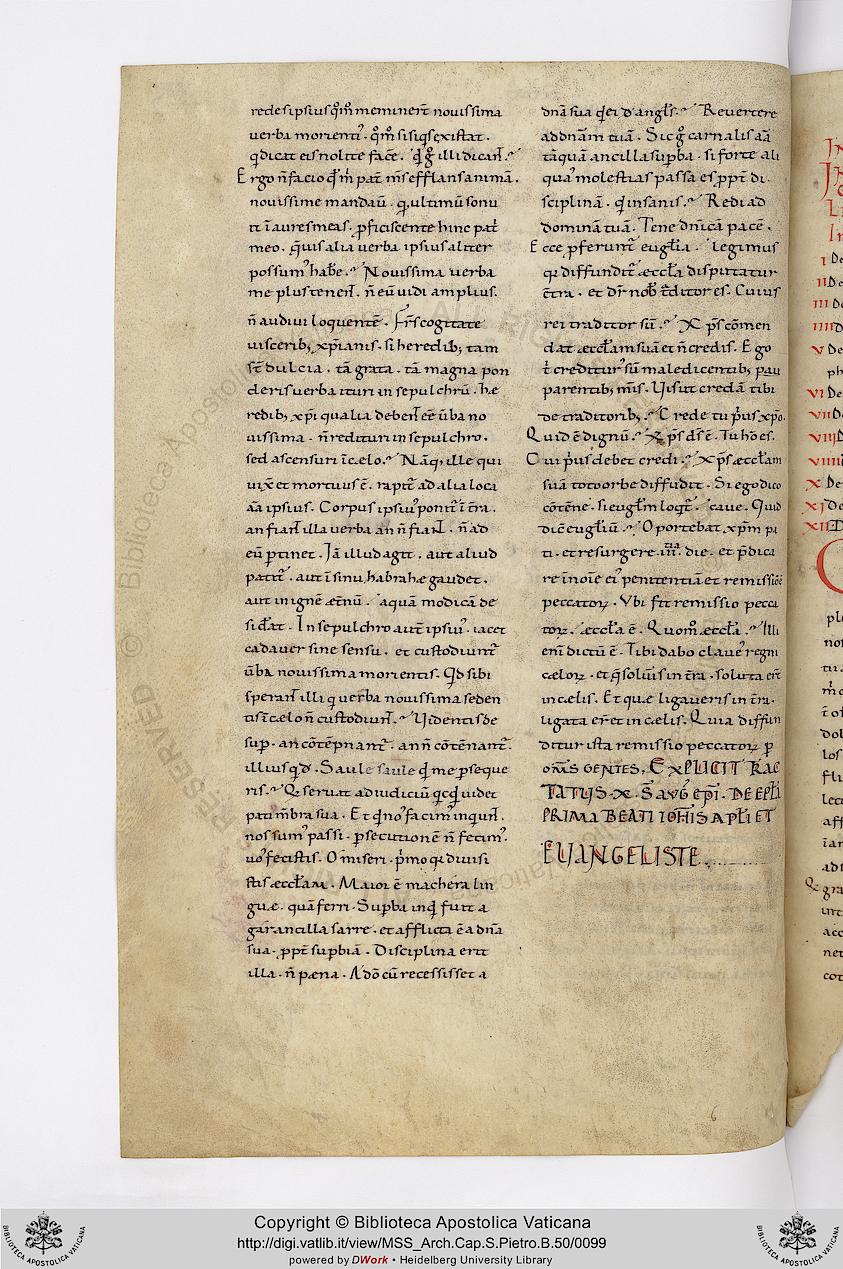 redes ipsius qm̄ meminer̄t novissima
verba morientiˀ. qm̄ si siq̄s existat.
q̄ dicat eis nolite facē. q̄ ḡ illi dicanł.
Ergo n̄ facio qđ m̄ pat̄ m̄s efflans animā.
novissime mandau̅. q, ultimū sonu
it ī aures meas. ꝓficiscente hinc pat̄
meo. q̄uis alia verba ipsius aliter
possumˀ habe. Novissima verba
me plus tenenł. n̄ eū uidi amplius.
n̄ audivi loquentē. Fr̄s cogitate
visceribꝫ xp̄ianis. si heredibꝫ tam
st̄ dulcia. tā grata. tā magna pon
deris verba ituri in sepulchrū. he
redibꝫ xp̄i qualia debenł eē ūba no
vissima. n̄ redituri in sepulchro.
sed ascensuri ī cælo. Nāqꝫ ille qui
uix̄ et mortuus ē. raptē ad alia loca
āa ipsius. Corpus ipsiuˀ ponit̄ ī t̄ra.
an fianł illa verba an n̄ fianł. n̄ ad
eū ꝑtinet. Iā illud agit. aut aliud
patit̄. aut ī sinu habrahę gaudet.
aut in ignē æt̄nū. aquā modicā de
sid̄at. In sepulchro aut̄ ipsiuˀ iacet
cadauer sine sensu. et custodiunt̄
ūba novissima morientis. Qd sibi
speranł illi q verba novissima seden
tis ī cælo n̄ custodiunł. Uidentis de
suꝑ. an cōtēpnant̄. an n̄ cōtēnant̄.
illius q̄ d̄. Saule saule qđ me perseque
ris. Qi servat ad iudiciū qcqđ uidet
pati mb̄ra sua. Et qđ noˀ facimˀ inquiunł.
nos sumˀ passi. ꝑsecutionē n̄ fecimˀ.
uoˀ fecistis. O miseri. p̄mo q̄ divisi
stis æccl̄am. Maior ē machera lin
guæ. quā ferri. Suꝑba inqđ fuit a
gar ancilla sarre. et afflicta ē a dn̄a
sua. ꝓpt̄ suꝑbiā. Disciplina erit
illa. n̄ pæna. Adō cū recessisset a
dn̄a sua qđ ei d̄ angl̄s. Revertere
ad dnām tuā. Sic ḡ carnalis āa
tāquā ancilla suꝑba. si forte ali
quaˀ molestias passa es ꝓpt̄ di
sciplinā. qđ insanis. Redi ad
dominā tuā. Tene dn̄icā pacē.
Ecce ꝓferunt̄ eugl̄ia. legimus
q̄ diffundit̄ æccl̄a disputatur
c̄tra. et dr̄ nob̄ t̄ditor es. Cuius
rei traditor sū. Xp̄s cōmen
dat æccl̄am suā et n̄ credis. Ego
t̄ crediturˀ sū maledicentibꝫ pau
parentibꝫ m̄is. Uis ut credā tibi
de traditoribꝫ. Crede tu p̄us xp̄o.
Quid ē dignū. Xp̄s d̄s ē. Tu hō es.
Cui p̄us debet credi. Xp̄s æccl̄am
suā toto orbe diffudit. Si ego dico
cōtēne. si eugl̄m loqt̄. cave. Quid
dic̄ eugl̄iū. Oportebat xp̄m pa
ti. et resurgere .III. die. et p̄dica
re ī noīe eiˀ penitentiā et remissiōē
peccatorꝝ. Vbi fit remissio pecca
torꝝ. æccl̄a ē. Quom̄ æccl̄a. Illi
eni dictū ē. Tibi dabo claveˀ regni
cælorꝝ. et q̄ solu̅is in t̄ra. soluta er̄t
in cælis. Et quæ ligaveris in t̄ra.
ligata er̄t et in cælis. Quia diffun
ditur ista remissio peccatorꝝ ꝑ
om̄s GENTES. EXPLICIT TRAC
TATUS .X. S̄ AUḠ EP̄I. DE EPL̄A
PRIMA BEATI IOH̄IS APL̄I ET
EUANGELISTE.
6
Copyright © Biblioteca Apostolica Vaticana
http://digi.vatlib.it/view/MSS_Arch.Cap.S.Pietro.B.50/0099
powered by DWork • Heidelberg University Library